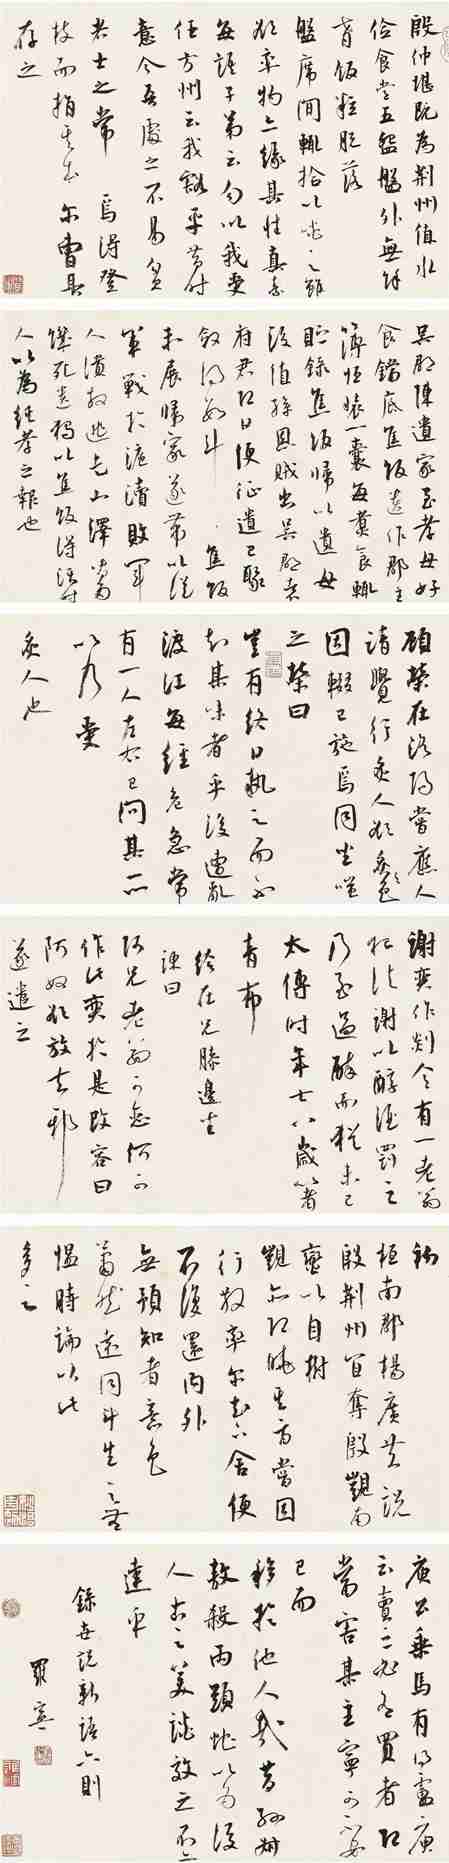 殷仲堪既為荊州值水
儉食常五盌盤外無餘
肴飯粒脫落
盤席間輒拾以噉之雖
欲率物亦緣其性真素
每語子弟云勿以我受
任方州云我豁平昔時
意今吾處之不易貧
者士之常 焉得登
枝而捐其本 爾曹其
存之
吳郡陳遺家至孝母好
食鐺底焦飯遺作郡主
簿恒裝一囊每煮食輒
貯錄焦飯歸以遺母
後值孫恩賊出吳郡袁
府君即日便征遺已聚
斂得數斗 焦飯
未展歸家遂帶以從
軍戰於滬瀆敗軍
人潰散逃走山澤皆多
饑死遺獨以焦飯得活時
人以為純孝之報也
顧榮在洛陽嘗應人
請覺行炙人欲炙色
因輟己施焉同坐嗤
之榮曰
豈有終日執之而不
知其味者乎後遭亂
渡江每經危急常
有一人左右已問其所
以乃受
炙人也
謝奕作剡令有一老翁
犯法謝以醇酒罰之
乃至過醉而猶未已
太傅時年七八歲著
青布
絝在兄膝邊坐
諫曰
阿兄老翁可念何可
作此奕於是改容曰
阿奴欲放去邪
遂遣之
初
桓南郡楊廣共說
殷荊州宜奪殷覬南
蠻以自樹
覬亦即曉其旨嘗因
行散率爾去下舍便
不復還內外
無預知者意色
蕭然遠同鬥生之無
慍時論以此
多之
庾公乘馬有的盧庾
云賣之必有買者即
當害其主寧可不安
己而
移於他人哉昔孫叔
敖殺兩頭蛇以為後
人古之美談效之不亦
達乎
錄世說新語六則